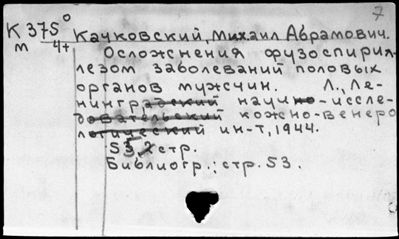 7
К375° Качковский, Михаил Абрамович.
м 4+ Осложнения фузоспирил-
лезом заболеваний половых
органов мужчин. Л., Ле-
нинградский научно-иссле-
довательский кожно-венеро
логический ин-т, 1944.
53,2 стр.
Библиогр.: стр. 53.